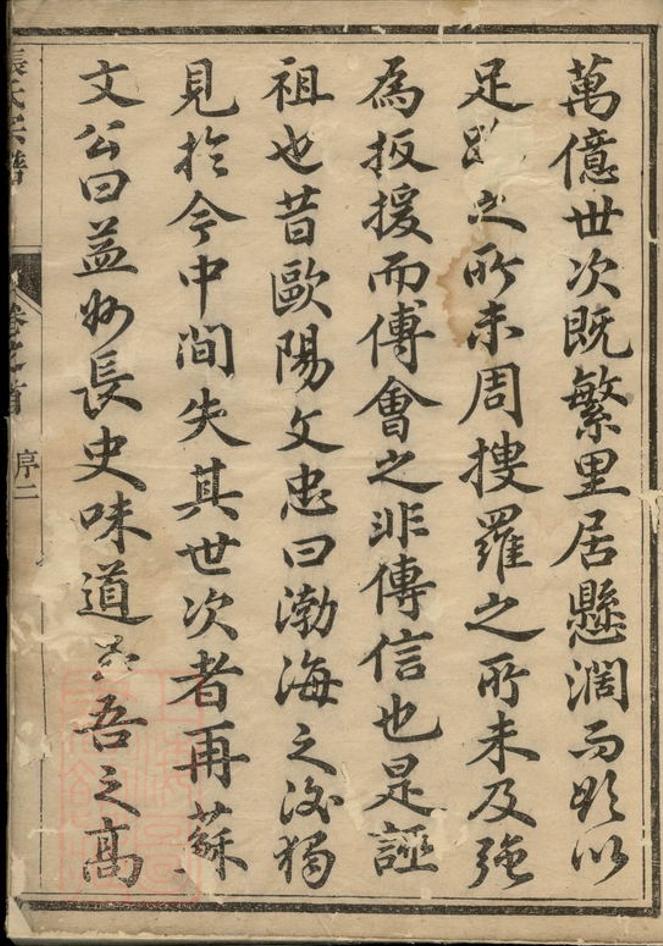 萬億世次既繁里居懸濶而欲以
足之所未周搜羅之所未及強
為扳援而傅會之非傳信也是誣
祖也昔歐陽文忠曰渤海之後獨
見扵今中間失其世次者再蘇
文公曰益州長史味道吾之高
張氏宗譜
卷之首
序二